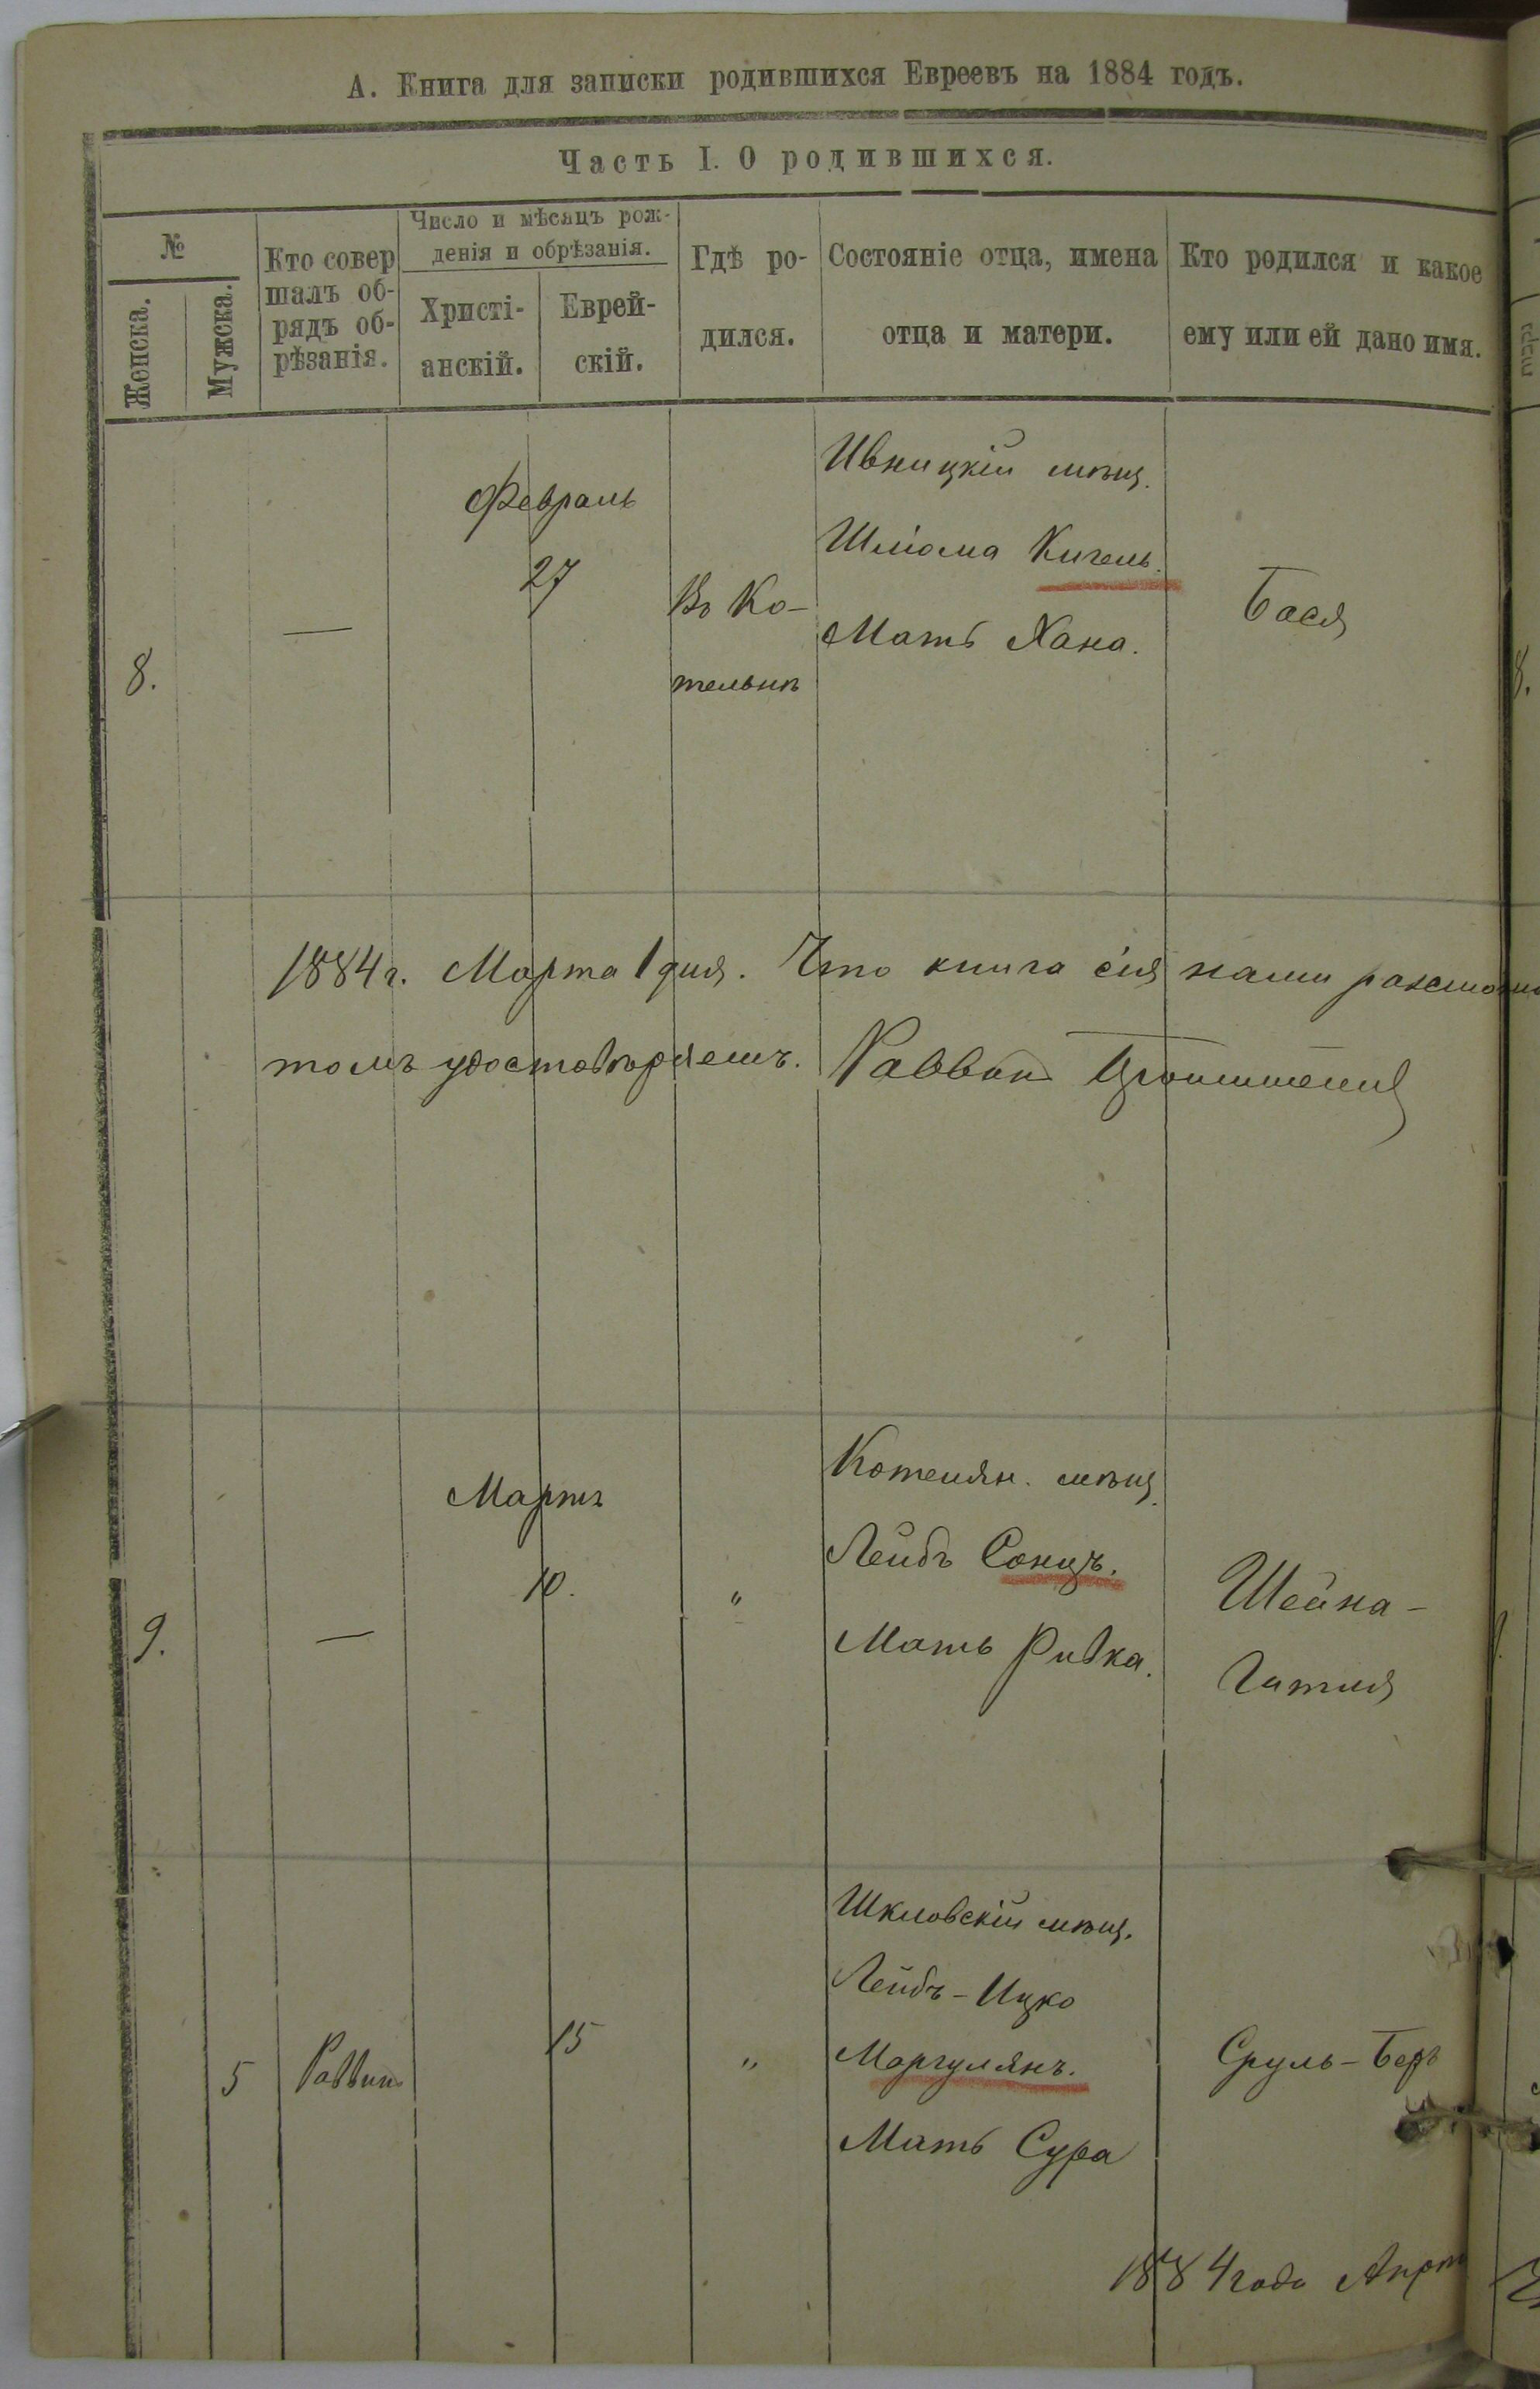 А. Книга для записки родившихся Евреевъ на 1884 годъ.
Часть I. О родившихся.
№
Женска.
Мужска.
Кто совер
шалъ об-
рядъ об-
рѣзанія.
Число и мѣсяцъ рож-
денія и обрѣзанія.
Христі-
анскій.
Еврей-
скій.
Гдѣ ро-
дился.
Состояніе отца, имена
отца и матери.
Кто родился и какое
ему или ей дано имя.
8.
—
Февраль
27
Въ Ко-
тельнѣ
Ивницкій мѣщ.
Шліома Кигель.
Мать Хана.
Бася
1884 г. Марта 1 дня. Что книга сія нами
томъ удостовѣряемъ. Раввинъ
9.
—
Мартъ
10.
"
Котелян. мѣщ.
Лейбъ Сонцъ.
Мать Ривка.
Шейна-
Гитля
5
Раввин
15
"
Шкловскій мѣщ.
Лейбъ-Ицко
Маргулянъ.
Мать Сура
Сруль-Беръ
1884 года